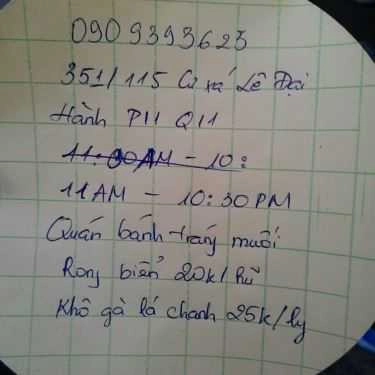 090 9393623
351/115 Cư xá Lê Đại
Hành P11 Q11
11:00AM - 10:
11AM - 10:30PM
Quán bánh tráng muối
Rong biển 20k/hũ
Khô gà lá chanh 25k/ly